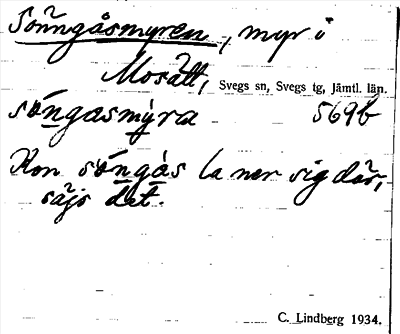 Sönngåsmyren, myr i
Mosätt, Svegs sn, Svegs tg, Jämtl. län.
söngasmýra 569b
Hon söngås la ner sig där,
säjs dät.
C. Lindberg 1934.